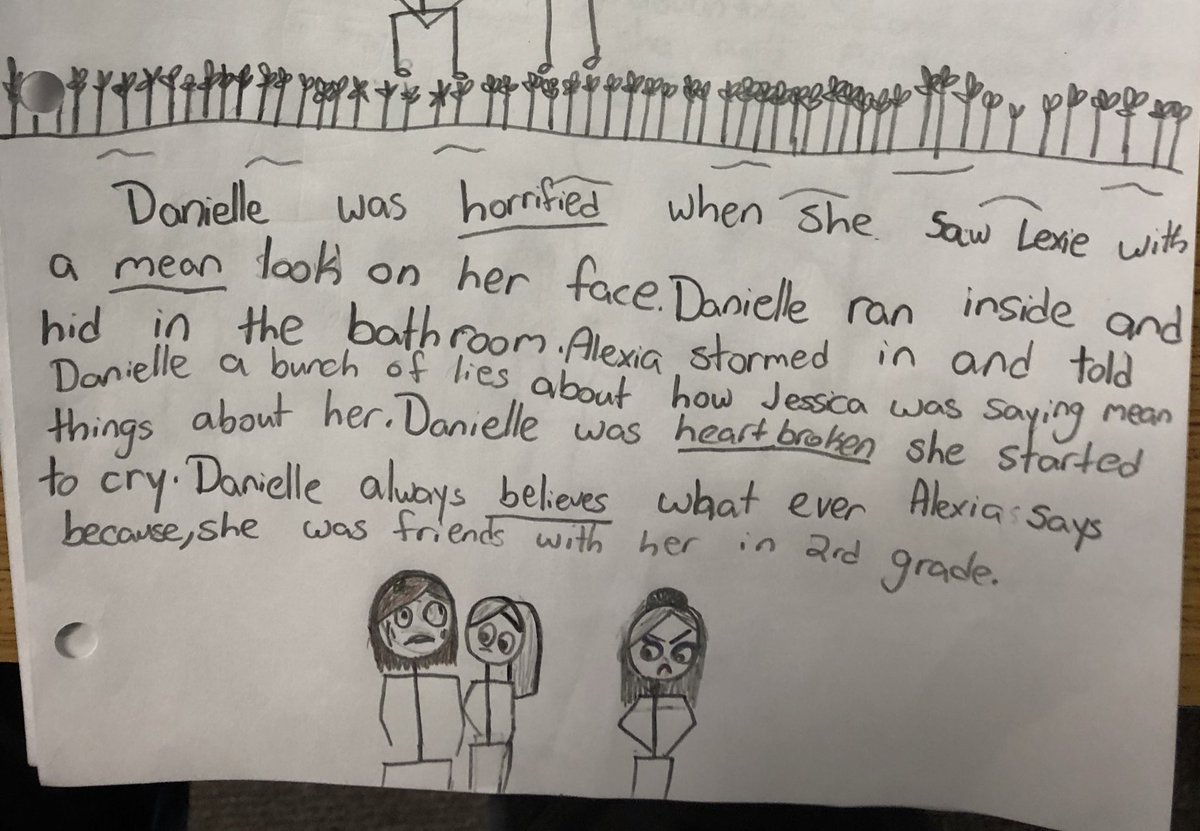 Danielle was horrified when she saw Lexie with
a mean look on her face. Danielle ran inside and
hid in the bathroom. Alexia stormed in and told
Danielle a bunch of lies about how Jessica was saying mean
things about her. Danielle was heart broken she started
to cry. Danielle always believes what ever Alexia says
because, she was friends with her in 2rd grade.